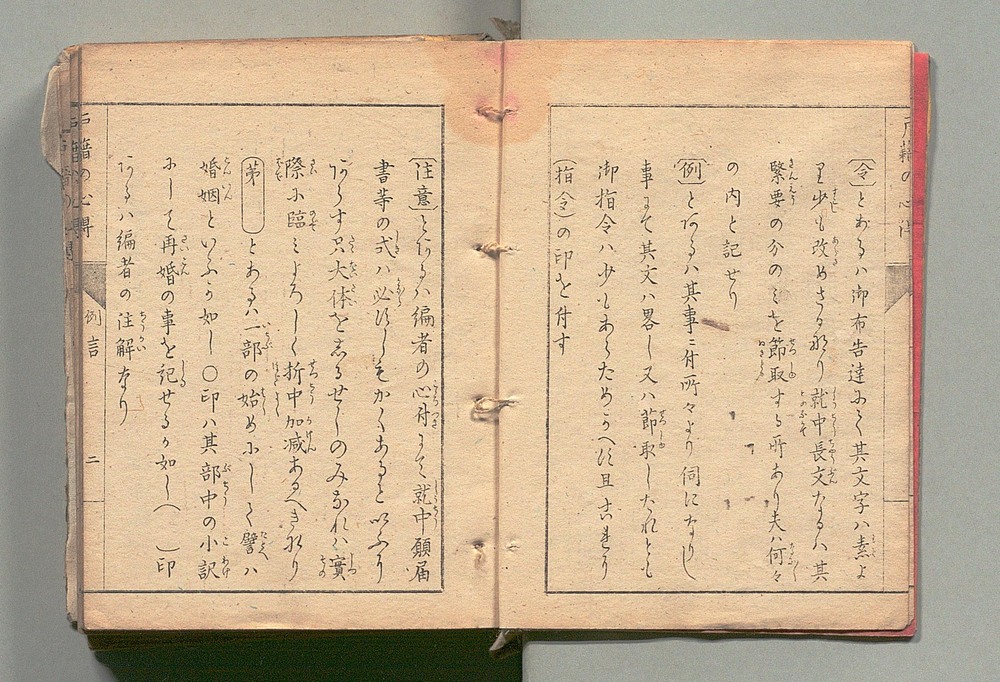 (令)とあるハ御布告達にて其文字ハ素よ
り少も改めさる也り就中長文なるハ其
緊要の分のミを節取する所あり夫ハ何々
の内と記せり
(例)とあるハ其事ニ付所々より伺になりし
事にて其文ハ畧し又ハ節取したれとも
御指令ハ少しもあらためかへす且
(指令)の印を付す
(注意)とあるハ編者の心付にて就中願届
書等の式ハ必すしもかくあると いふに
あらす只大体をしるせしのみなれハ實
際に臨ミよろしく折中加減あるへき也り
第 とあるハ一部の始めにして譬ハ
婚姻といふか如し〇印ハ其部中の小訳
にして再婚の事を記せるか如し 印
あるハ編者の注解なり
戸籍の心得
例言
二